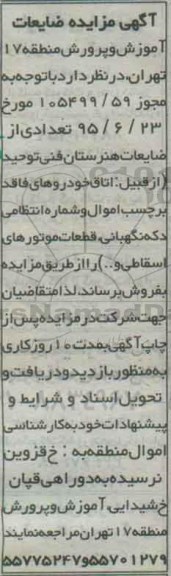 آگهی مزایده ضایعات
آموزش وپرورش منطقه ۱۷
تهران، درنظر دارد باتوجه به
مجوز ۵۹ / ۱۰۵۴۹۹ مورخ
۲۳ / ۶ / ۹۵ تعدادی از
ضایعات هنرستان فنی توحید
(از قبیل: اتاق خودروهای فاقد
برچسب اموال وشماره انتظامی
دکه نگهبانی، قطعات موتورهای
اسقاطی و..) را از طریق مزایده
بفروش برساند، لذا متقاضیان
جهت شرکت در مزایده پس از
چاپ آگهی بمدت ۱۰ روز کاری
به منظور بازدید و دریافت و
تحویل اسناد و شرایط و
پیشنهادات خود به کارشناسی
اموال منطقه به : خ قزوین
نرسیده به دوراهی قپان
خ شیدایی، آموزش وپرورش
منطقه ۱۷ تهران مراجعه نمایند
۵۵۷۰۱۲۷۹و۵۵۷۷۵۲۴۷